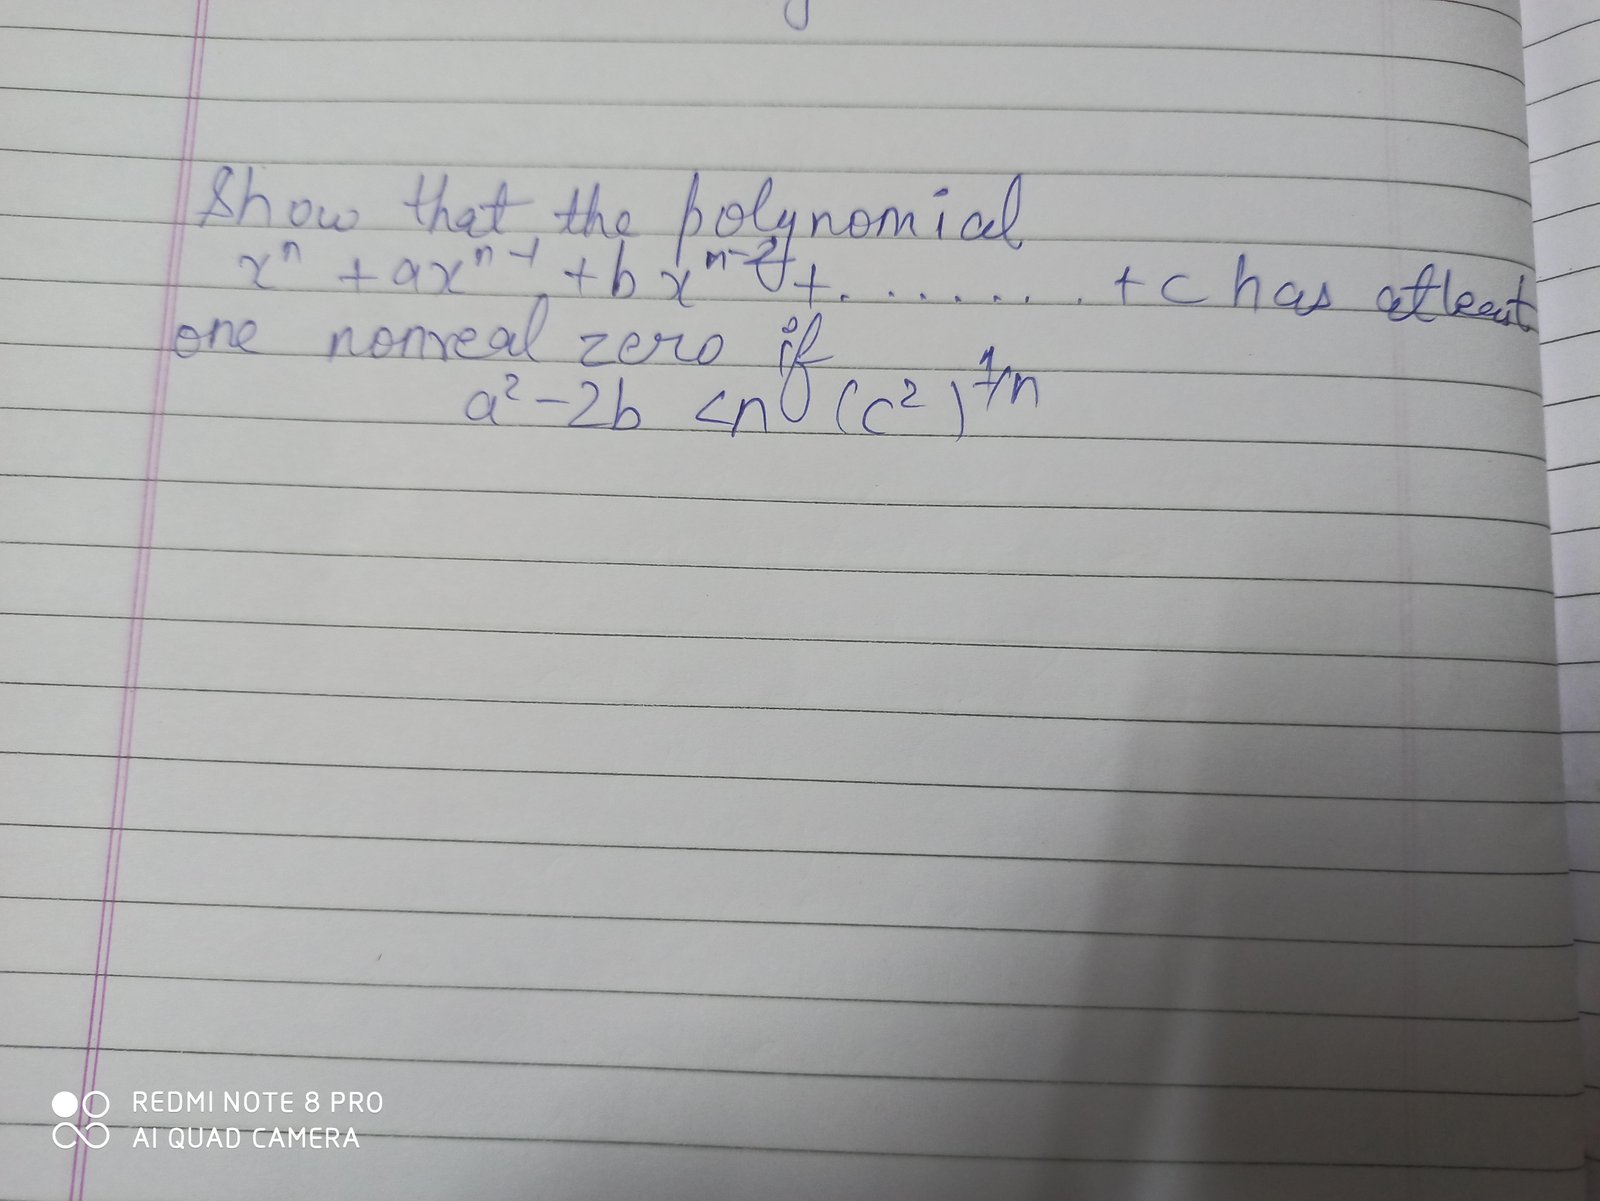 Show that the polynomial
xⁿ + axⁿ⁻¹ + bxⁿ⁻² + . . . . . . . + c has atleast
one nonreal zero if
a² - 2b < n (c²)^1/n
REDMI NOTE 8 PRO
AI QUAD CAMERA